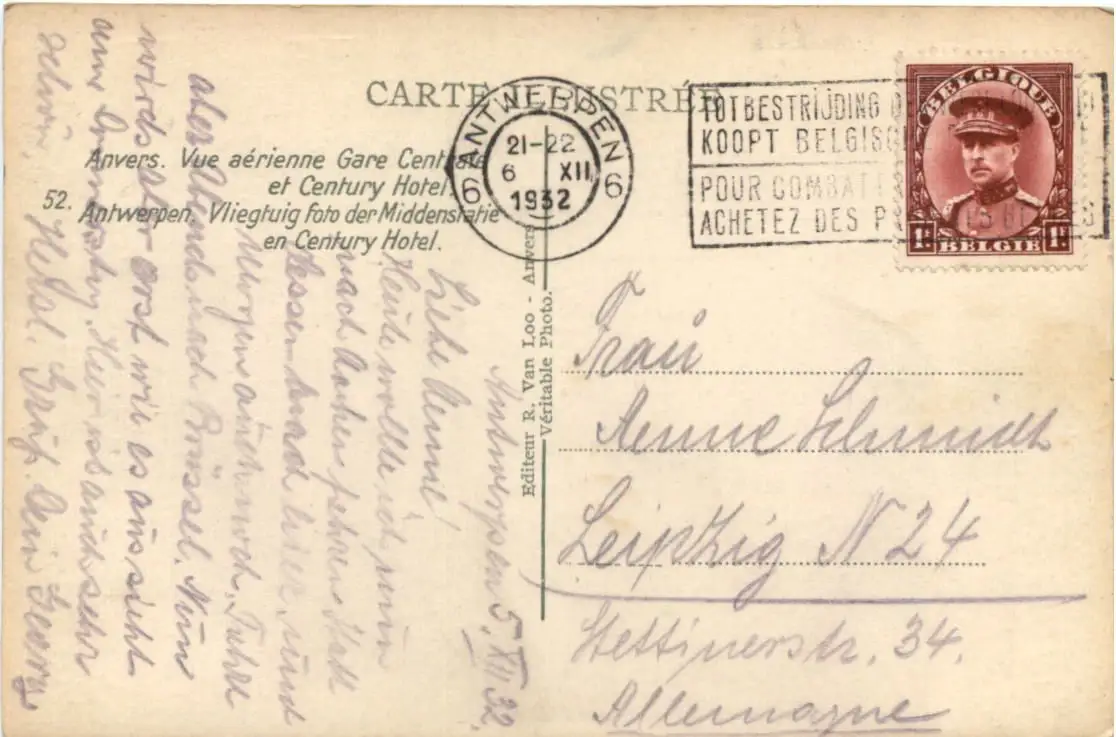 CARTE ILLUSTRÉE
Anvers. Vue aérienne Gare Centrale
et Century Hotel.
52. Antwerpen. Vliegtuig foto der Middenstatie
en Century Hotel.
ANTWERPEN
6 6
21-22
6 XII
1932
TOT BESTRIJDING
KOOPT BELGISC
POUR COMBAT
ACHETEZ DES P
BELGIQUE
1F BELGIE 1F
Editeur R. Van Loo - Anvers
Véritable Photo.
Antwerpen 5. XII 32.
Liebe Aenne!
Heute wollte ich
nach Aachen fahren. Statt
dessen
Morgen auch noch. Fahre
abends nach Brüssel. Nun
wirds aber erst wie es aussieht
am Donnerstag. Hier ist auch sehr
schön. Herzl. Gruß Dein Georg
Frau
Aenne Schmidt
Leipzig N 24
Stettinerstr. 34.
Allemagne